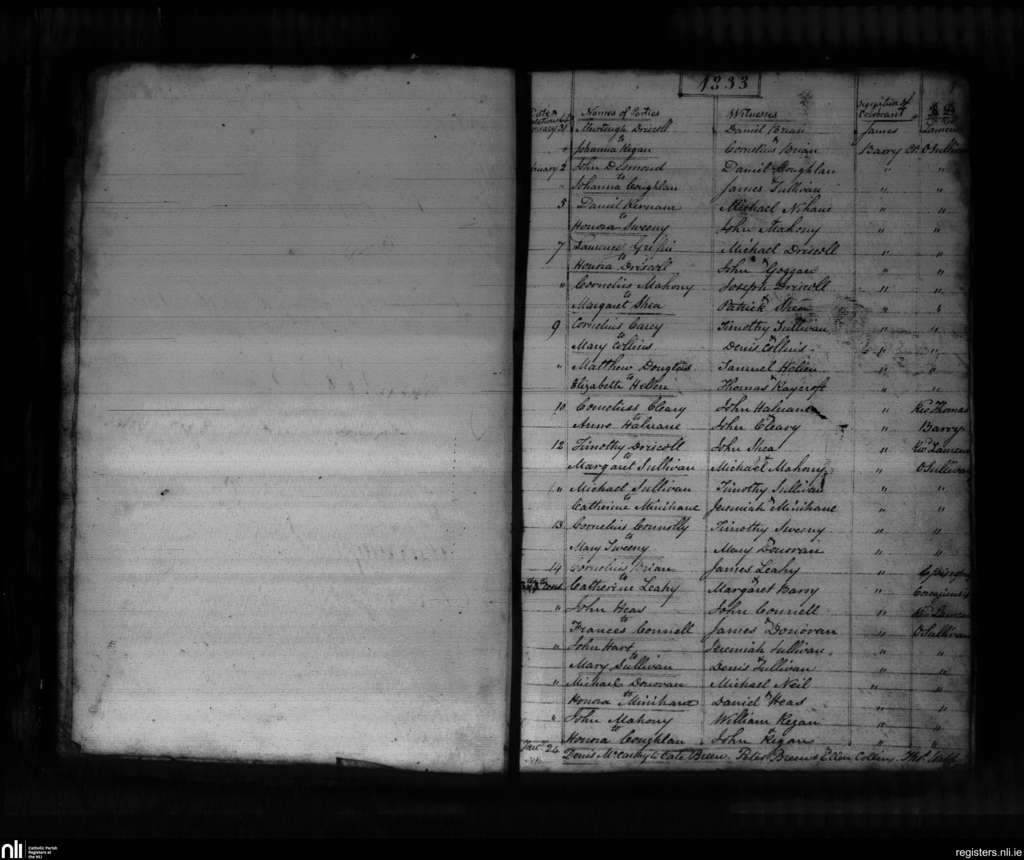 1833
Names of Parties Witnesses Description of Celebrant
Murtough Driscoll Daniel Brian James
to &
Johanna Regan Cornelius Brian Barry Ct. O Sullivan
2 John Desmond Daniel Coughlan " "
to &
" Johanna Coughlan James Sullivan " "
5 Daniel Michael Nihane " "
to &
Honora Sweeny John Mahony " "
7 Laurence Griffin Michael Driscoll " "
to &
Honora Driscoll John Goggan " "
" Cornelius Mahony Joseph Driscoll " "
to &
Margaret Shea Patrick Shea " "
9 Cornelius Carey Timothy Sullivan " "
to &
Mary Collins Denis Collins " "
" Matthew Douglas Samuel Helien " "
to &
Elizabeth Hellen Thomas Raycroft " "
10 Cornelius Cleary John Halnane " Revd Thomas
to &
Anne Halnane John Cleary " Barry
12 Timothy Driscoll John Shea "
to &
Margaret Sullivan Michael Mahony " O Sullivan
" Michael Sullivan Timothy Sullivan " "
to &
Catherine Minihane Jeremiah Minihane " "
13 Cornelius Connolly Timothy Sweeny " "
to &
Mary Sweeny Mary Donovan " "
14 Cornelius Brian James Leahy "
to &
Catherine Leahy Margaret Barry "
" John Heas John Connell "
to &
Frances Connell James Donovan " O Sullivan
" John Hart Jeremiah Sullivan " "
to &
Mary Sullivan Denis Sullivan " "
" Michael Donovan Michael Neil " "
to &
Honora Minihane Daniel Heas " "
" John Mahony William Regan " "
to &
Honora Coughlan John Regan " "
Jany 24 Denis McCarthy to Cate Breen. Peter Breen & Ellen Collins
nli Catholic Parish
Registers at
the NLI
registers.nli.ie